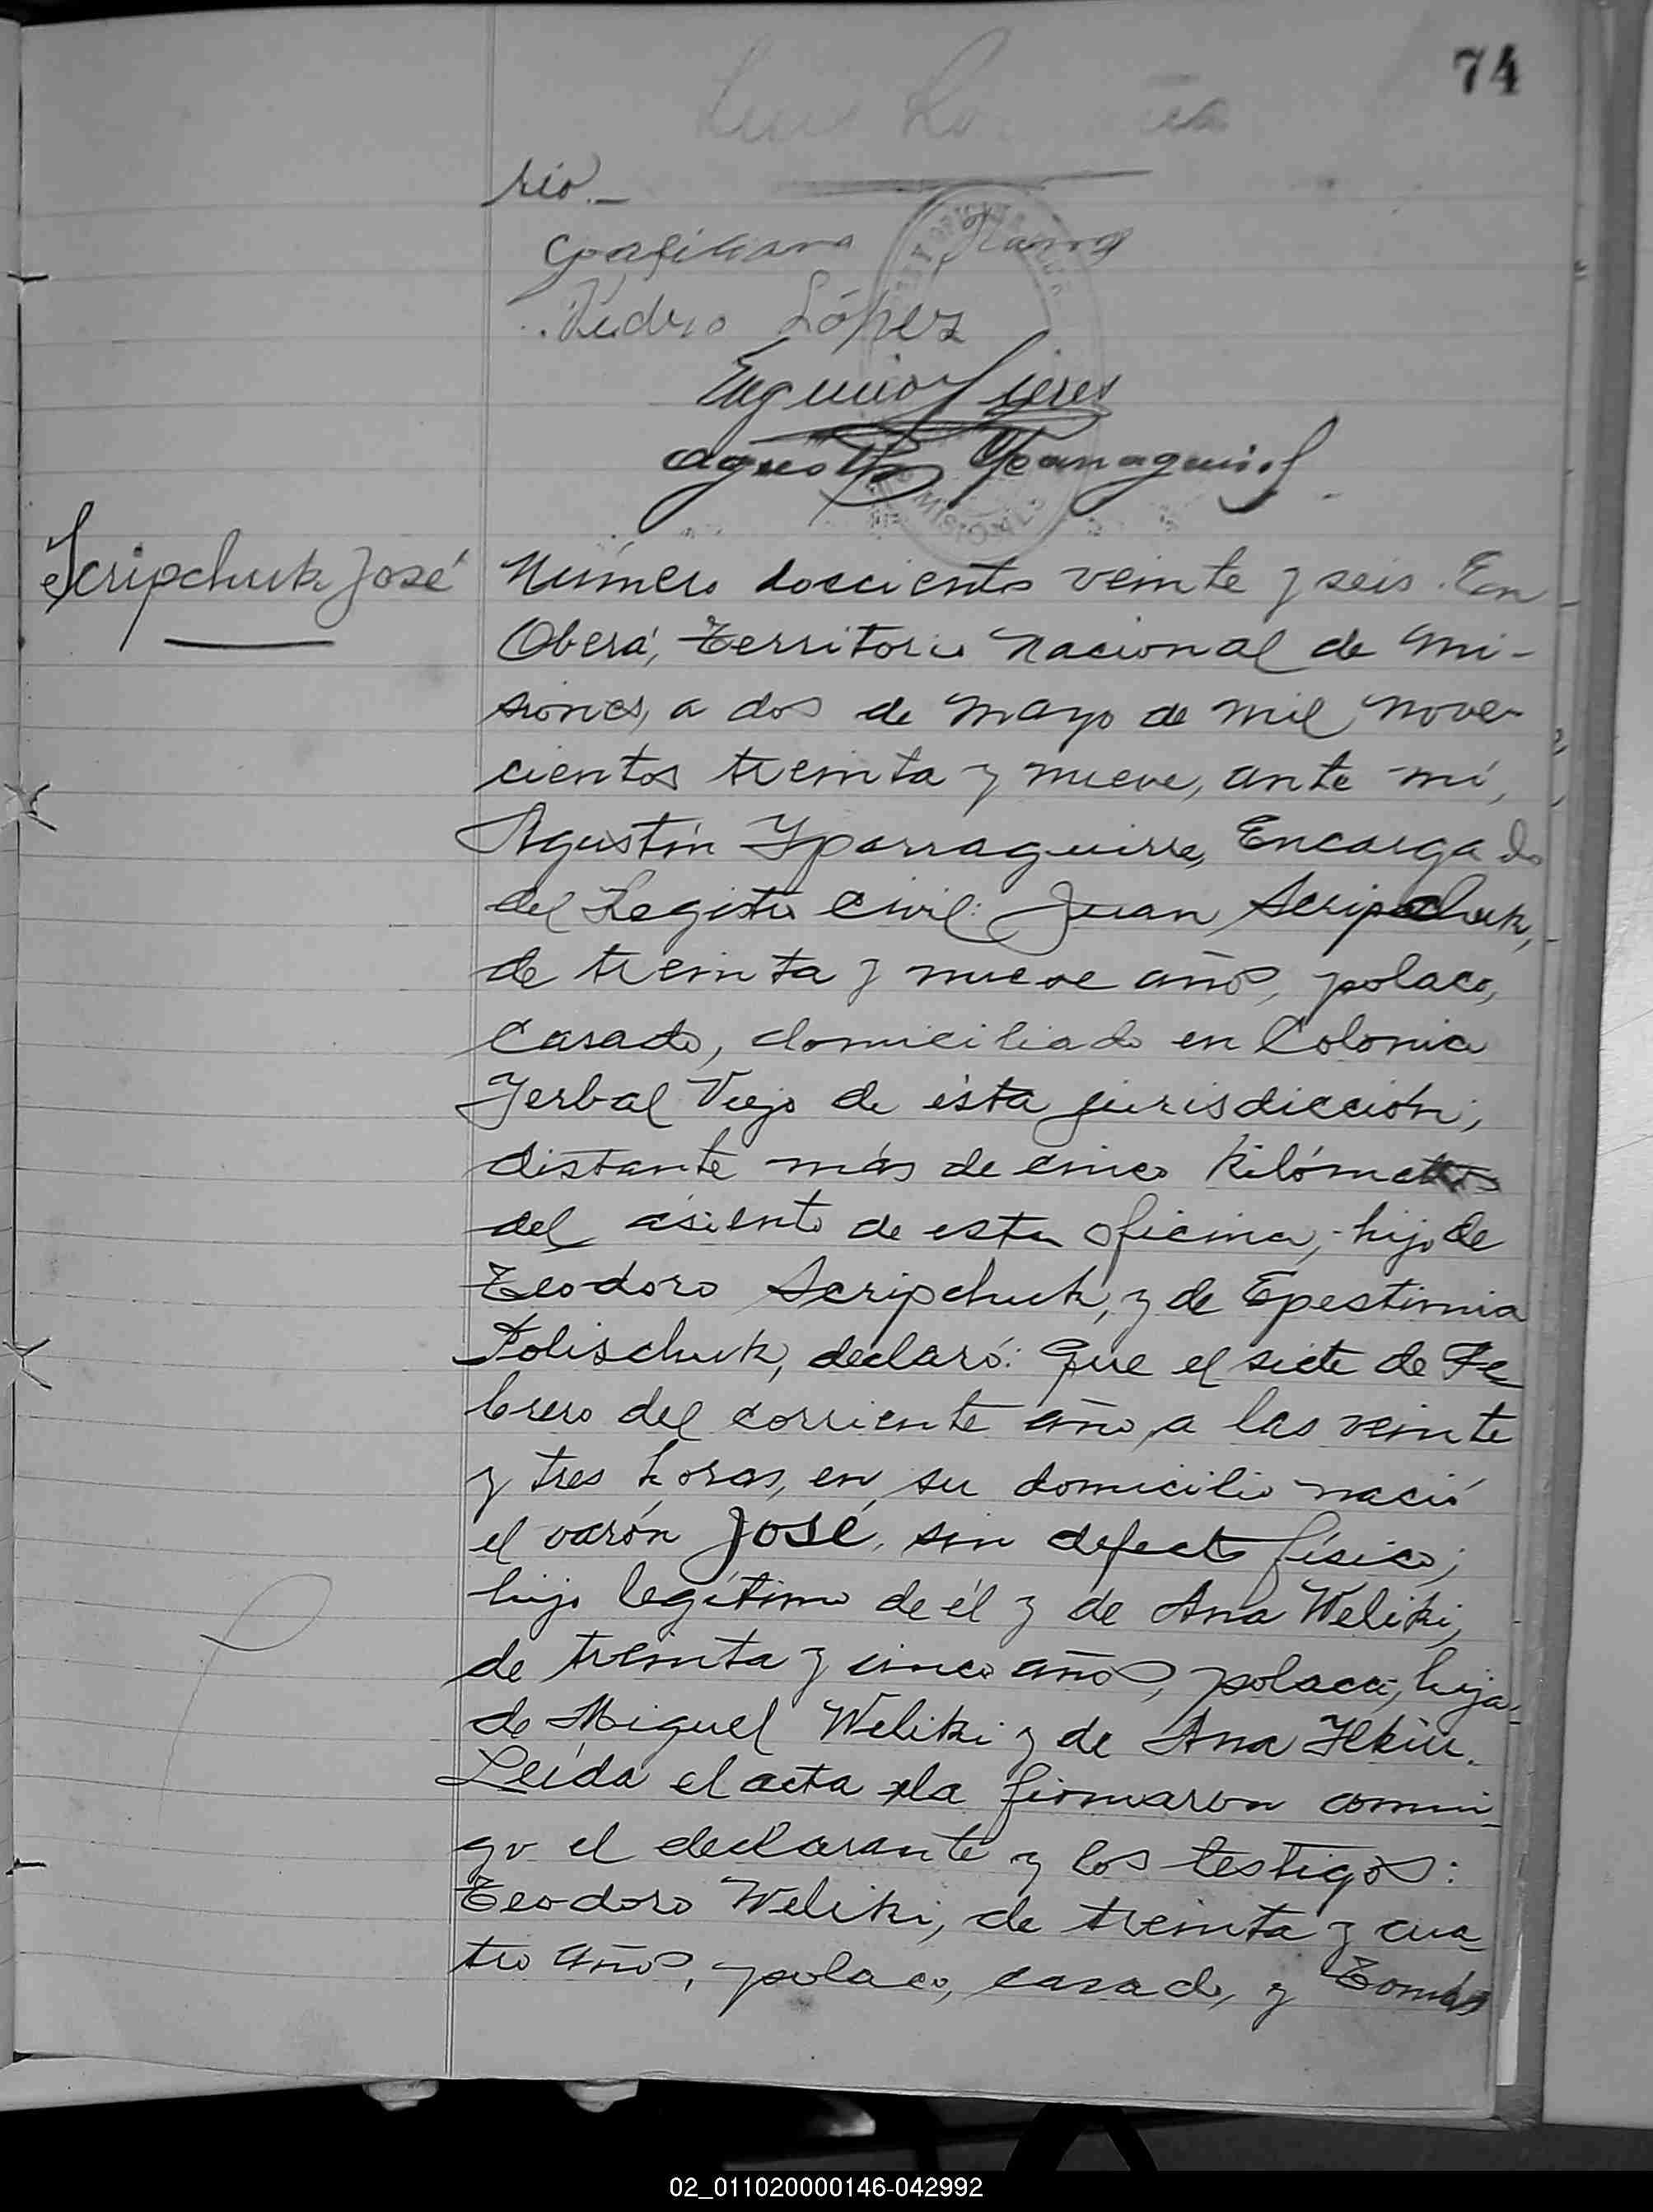 74
rio._
Pedro López
Scripchuk José
Número doscientos veinte y seis. En
Oberá, Territorio Nacional de Mi-
siones, a dos de Mayo de mil nove-
cientos treinta y nueve, ante mí,
Agustín Yparraguirre, Encargado
del Registro Civil: Juan Scripchuk,
de treinta y nueve años, polaco,
casado, domiciliado en Colonia
Yerbal Viejo de ésta jurisdicción,
distante más de cinco Kilómetros
del asiento de esta oficina, hijo de
Teodoro Scripchuk, y de Epestimia
Polischuk, declaró: Que el siete de Fe-
brero del corriente año, a las veinte
y tres horas, en su domicilio nació
el varón José, sin defecto físico;
hijo legítimo de él y de Ana Weliki,
de treinta y cinco años, polaca, hija
de Miguel Weliki y de Ana
Leída el acta la firmaron conmi-
go el declarante y los testigos:
Teodoro Weliki, de treinta y cua-
tro años, polaco, casado, y Tomás
02_011020000146-042992